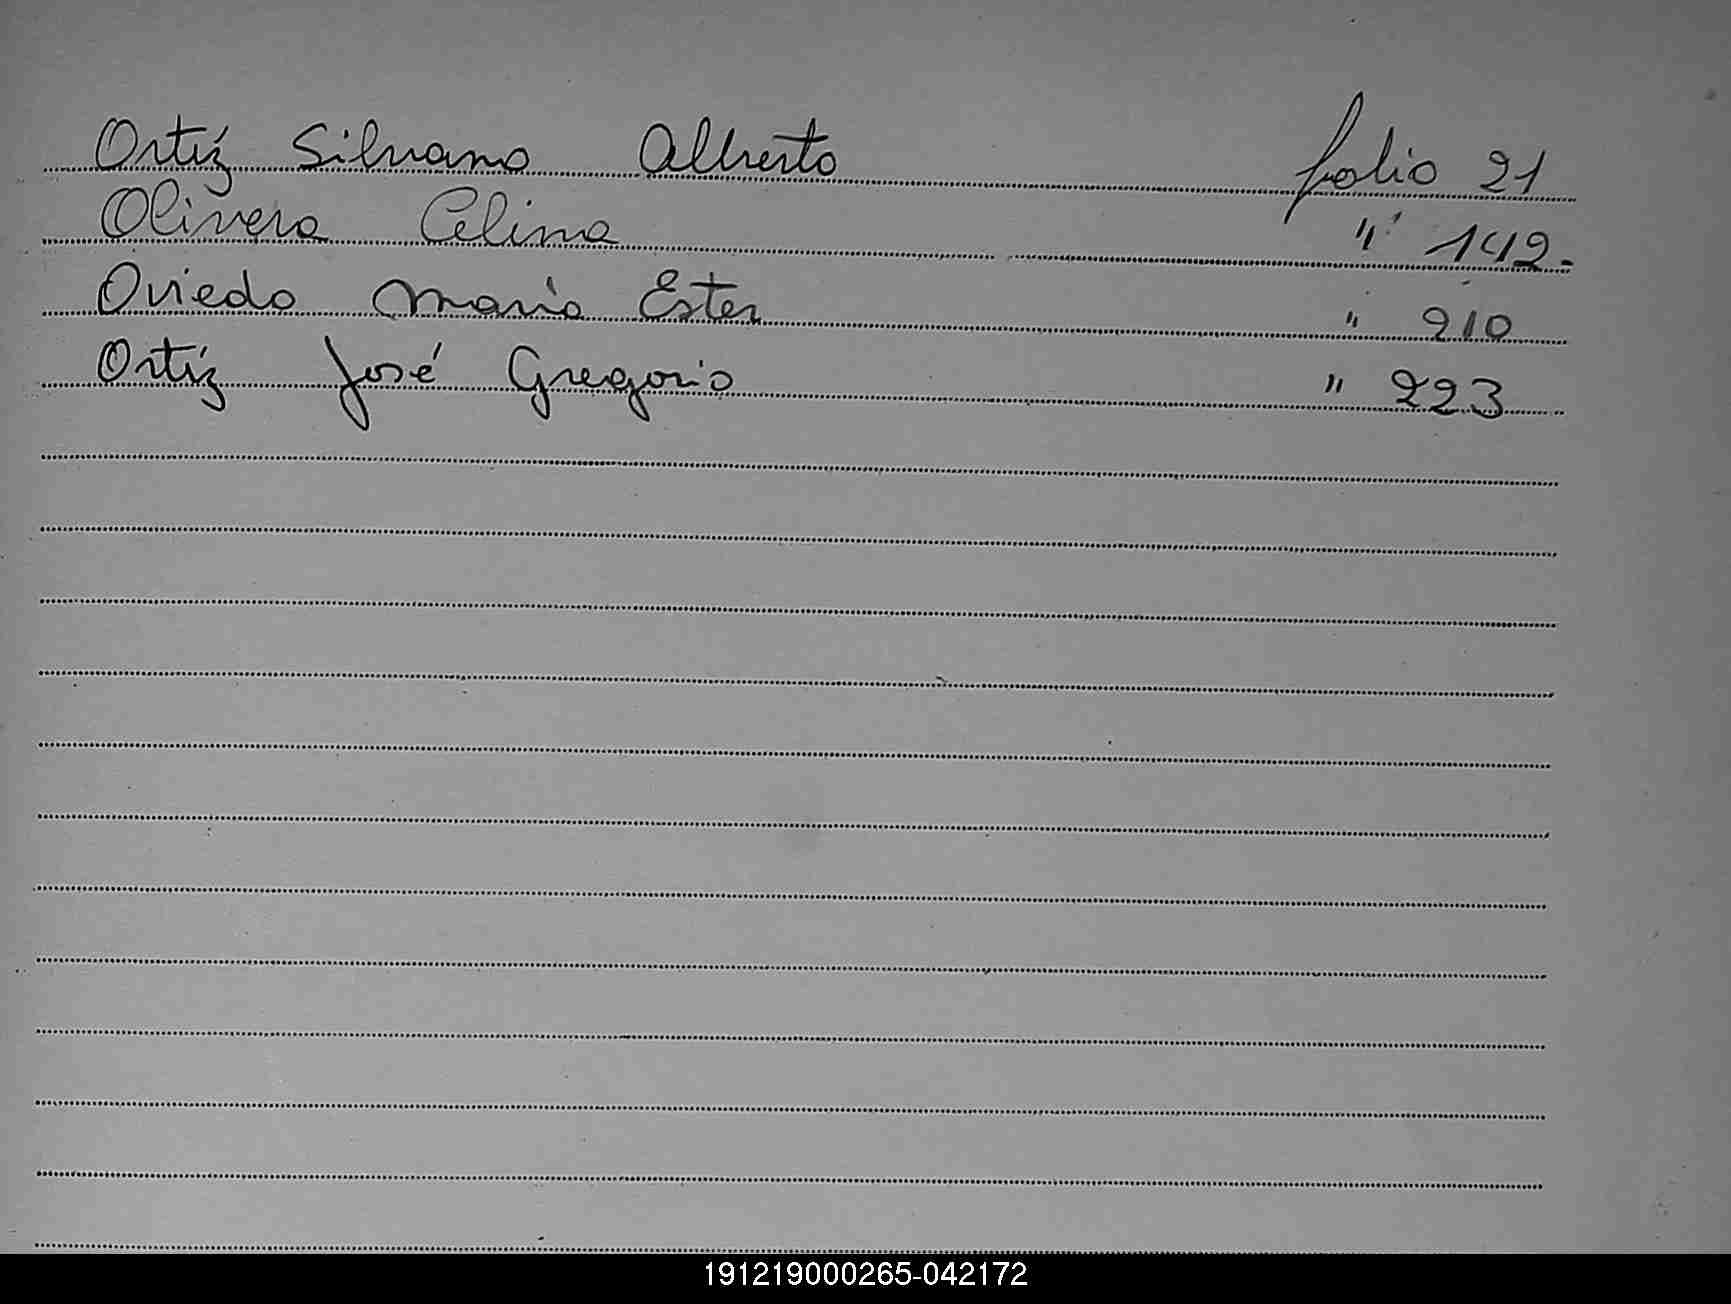 Ortíz Silvano Alberto folio 21
Olivera Celina " 142.
Oviedo Maria Ester " 210
Ortíz José Gregorio " 223
191219000265-042172